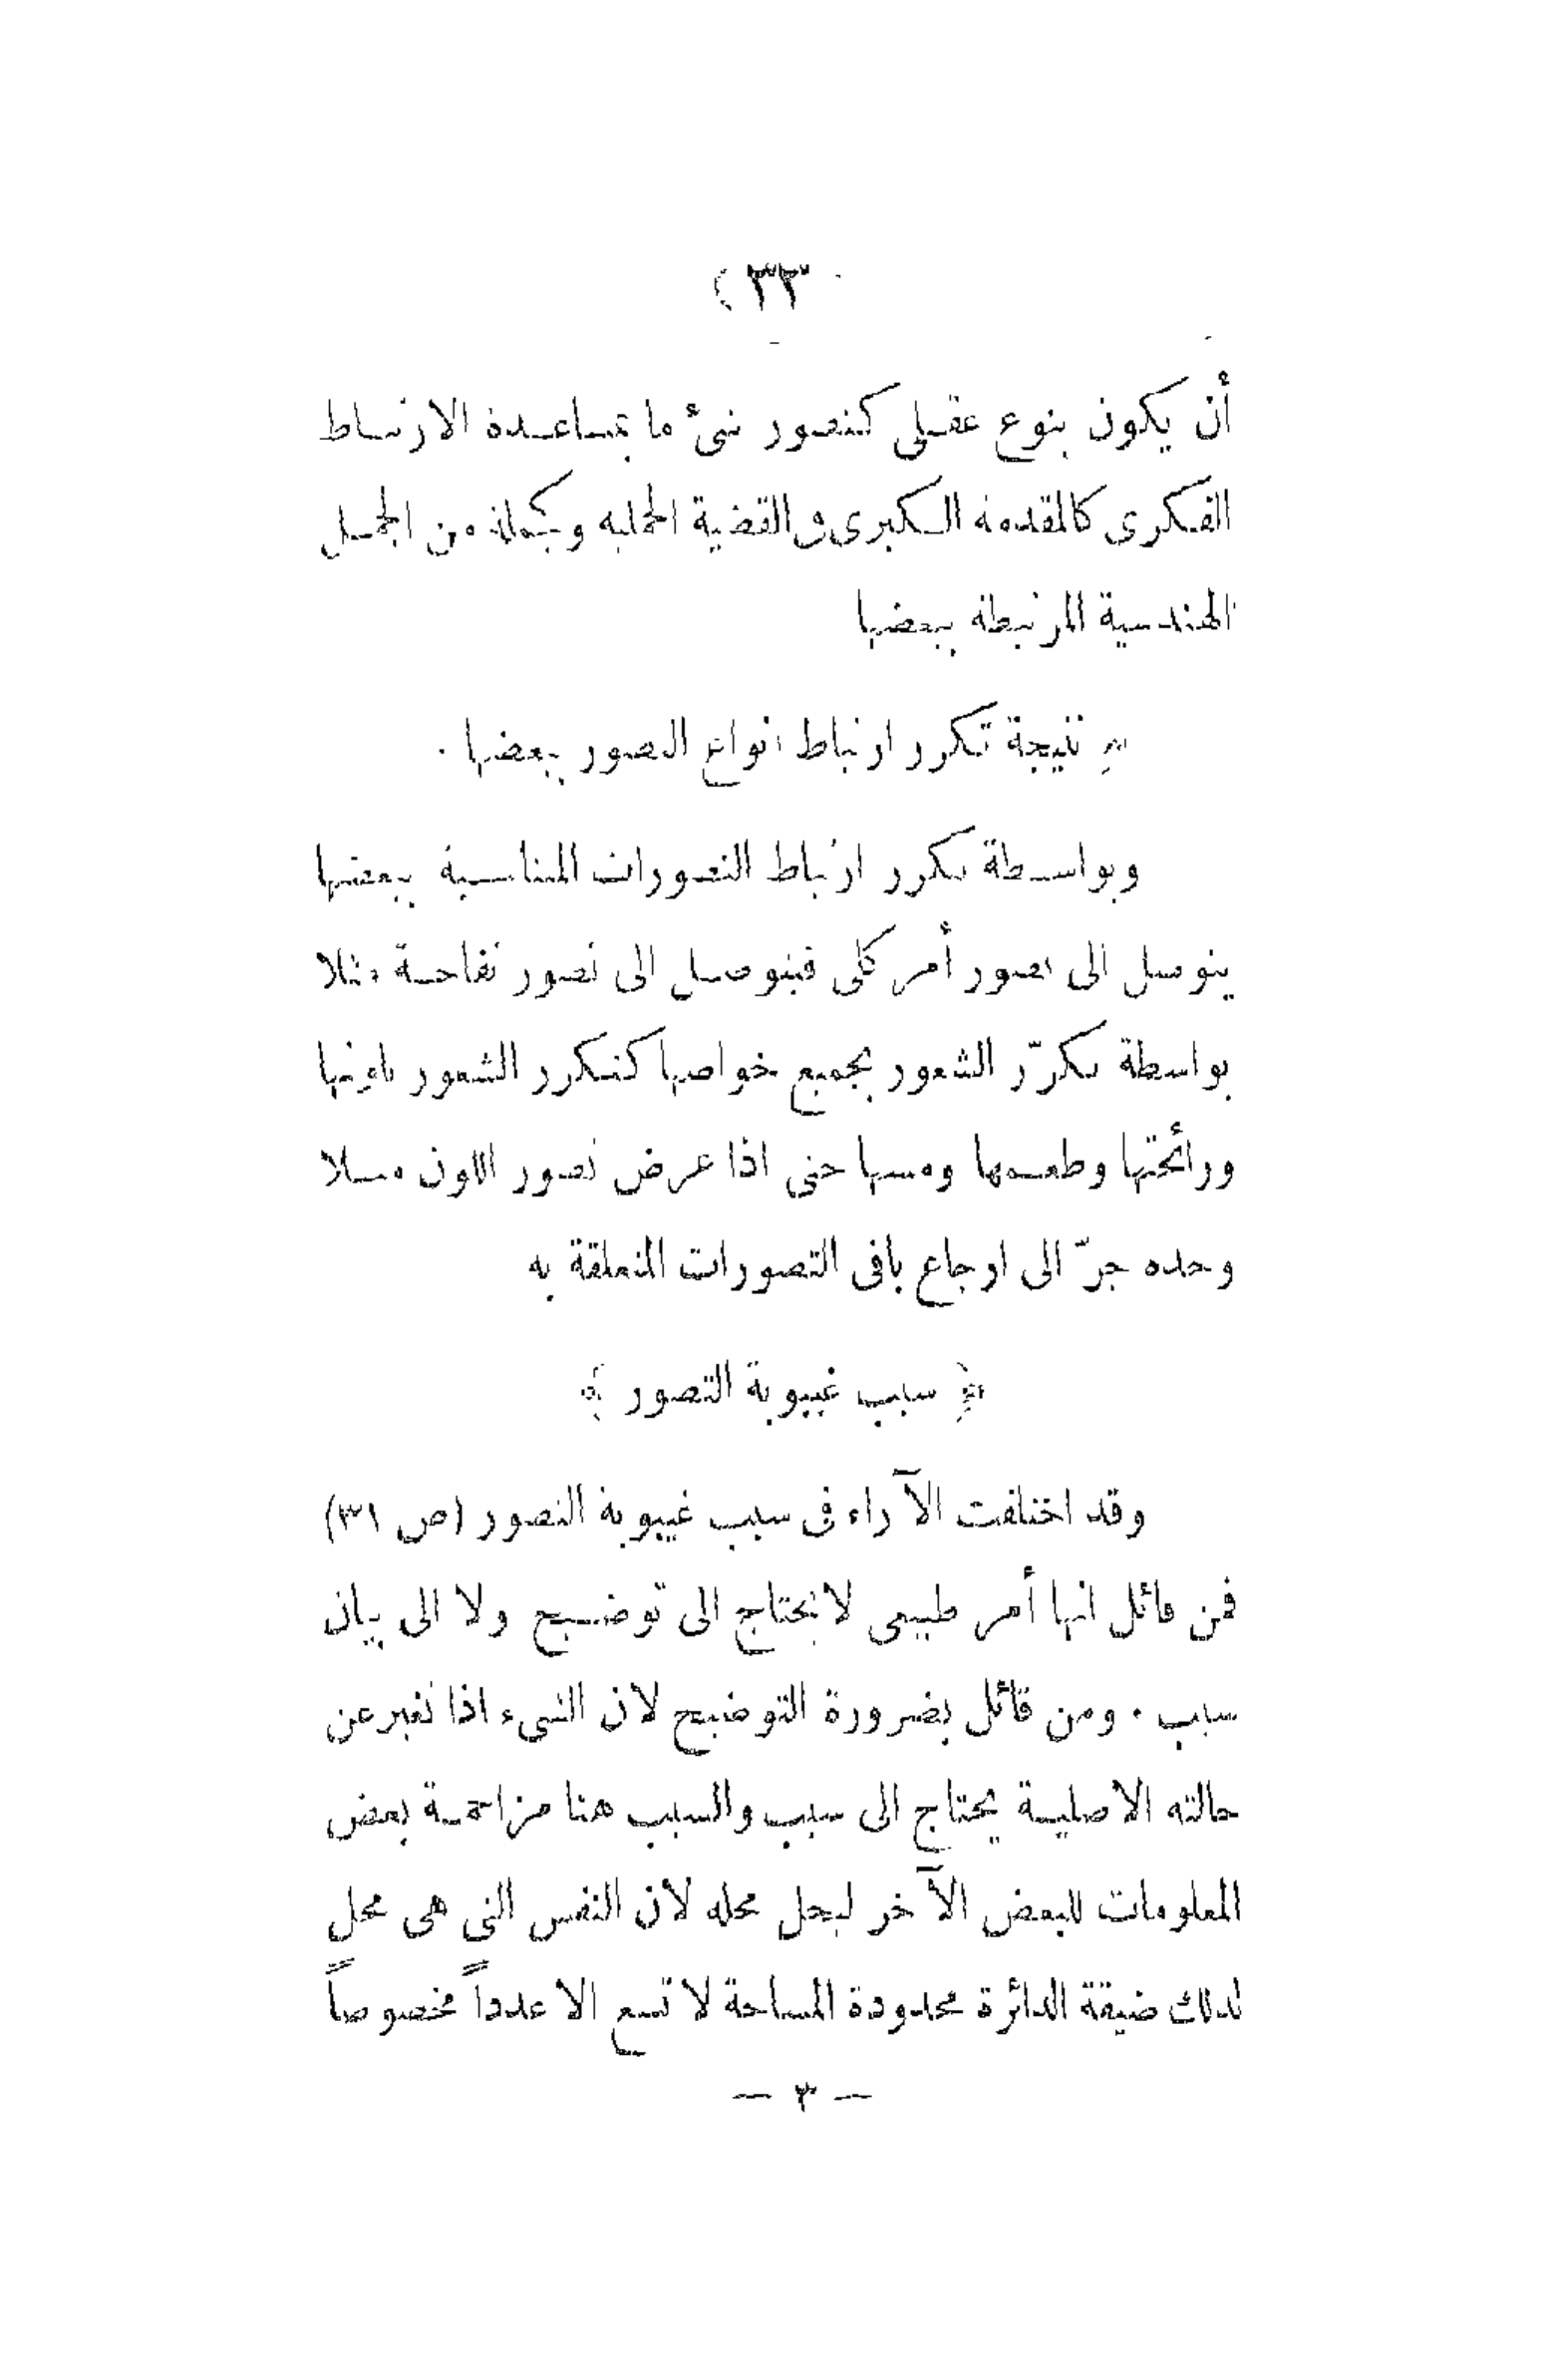 (٣٣)
أن يكون بنوع عقلى كتصور شئ ما بمساعدة الارتباط
الفكرى كالمقدمة الكبرى والقضية الحملية وكجملة من الجمل
الهندسية المرتبطة ببعضها
﴿ نتيجة تكرر ارتباط انواع الصور ببعضها .
وبواسطة تكرر ارتباط التصورات المناسبة ببعضها
يتوصل الى تصور أمر كلى فيتوصل الى تصور تفاحة مثلا
بواسطة تكرّر الشعور بجميع خواصها كتكرر الشعور بلونها
ورائحتها وطعمها ومسها حتى اذا عرض تصور اللون مثلا
وحده جرّ الى ارجاع باقى التصورات المتعلقة به
﴿ سبب غيبوبة التصور ﴾
وقد اختلفت الآراء فى سبب غيبوبة التصور (ص ٣١)
فمن قائل انها أمر طبيعى لا يحتاج الى توضيح ولا الى بيان
سبب . ومن قائل بضرورة التوضيح لان الشىء اذا تغير عن
حالته الاصلية يحتاج الى سبب والسبب هنا مزاحمة بعض
المعلومات للبعض الآخر ليحل محله لأن النفس التى هى محل
لذلك ضيقة الدائرة محدودة المساحة لا تسع الا عدداً مخصوصاً
— ٣ —